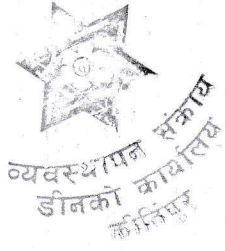 व्यवस्थापन संकाय
डीनको कार्यालय
कीर्तिपुर